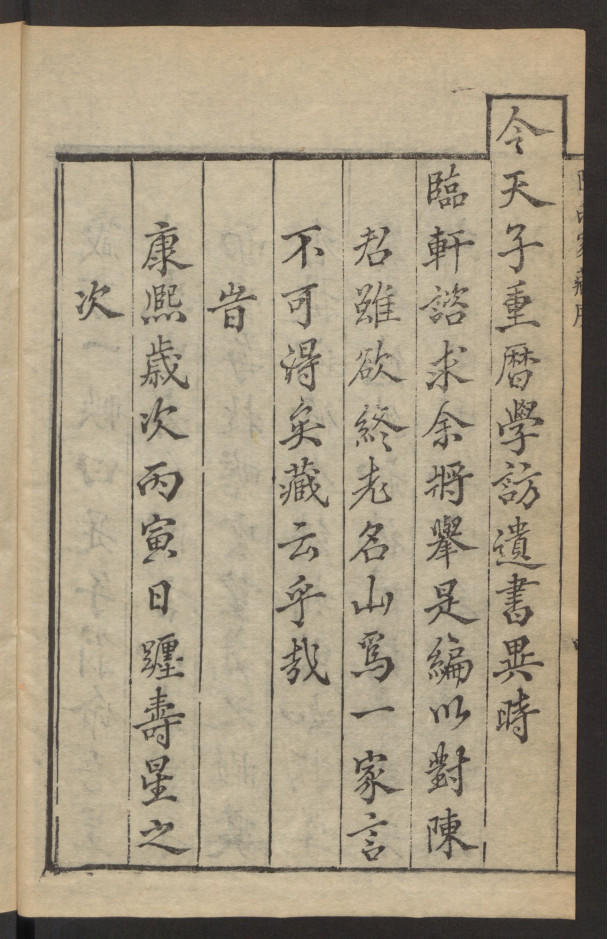 今天子重曆學訪遺書異時
臨軒諮求余將舉是編以對陳
君雖欲終老名山爲一家言
不可得矣藏云乎哉
旹
康熙歲次丙寅日躔壽星之
次